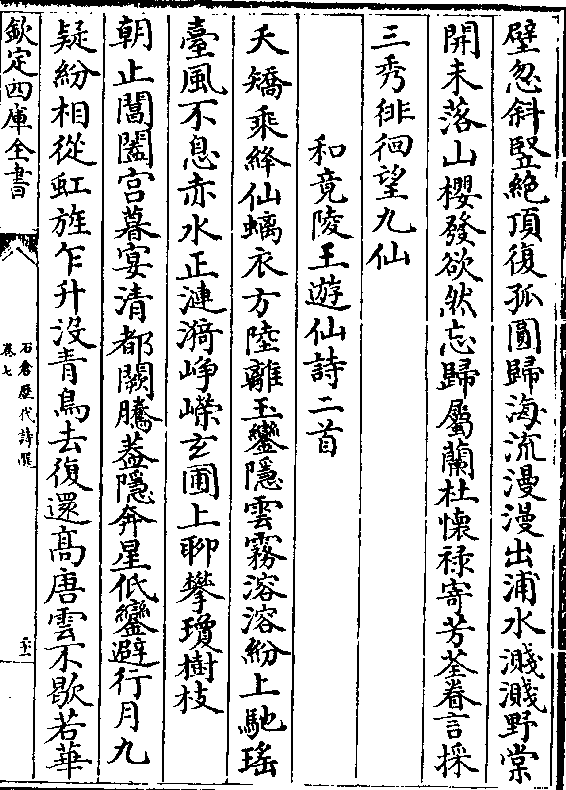 壁忽斜竪絶頂復孤圓歸海流漫漫出浦水濺濺野棠
開未落山櫻發欲然忘歸屬蘭杜懷禄寄芳荃眷言採
三秀徘徊望九仙
和竟陵王遊仙詩二首
夭矯乘絳仙螭衣方陸離玉鑾隱雲霧溶溶紛上馳瑤
臺風不息赤水正漣漪崢嶸玄圃上聊攀瓊樹枝
朝止閶闔宫暮宴清都闕騰葢隱奔星低鑾避行月九
疑紛相從虹旌乍升没青鳥去復還髙唐雲不歇若華
欽定四庫全書
石倉歷代詩選
卷七